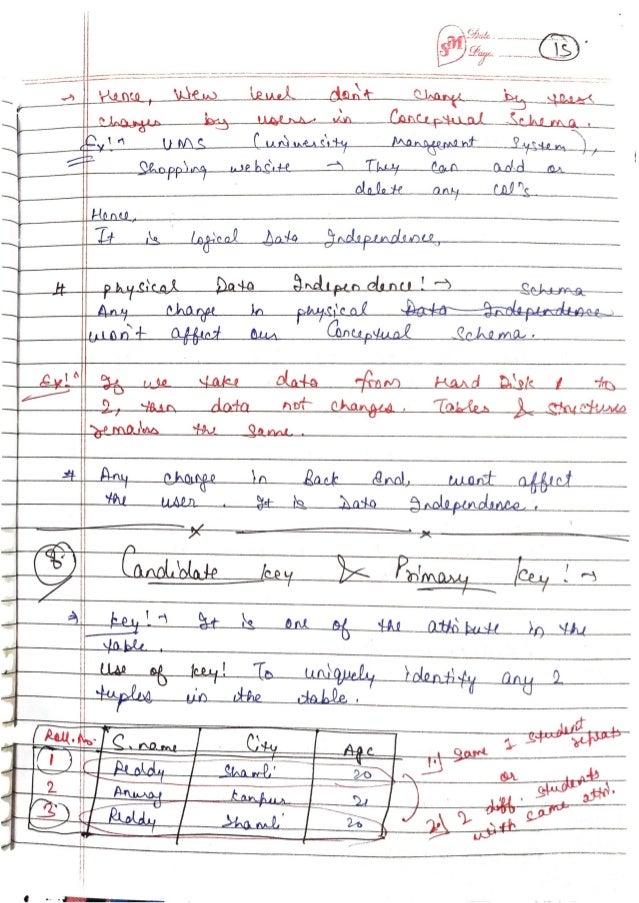 SM Date
Page 15
→ Hence, View level don't change by these
changes by users in Conceptual Schema.
Ex:- UMS (University Management System),
Shopping website → They can add or
delete any col's.
Hence,
It is logical Data Independence,
# physical Data Independence! → Schema
Any change in physical Data Independence
won't affect our Conceptual Schema.
Ex:- If we take data from Hard Disk 1 to
2, then data not changes. Tables & structures
remains the same.
* Any change in Back End, wont affect
the user. It is Data Independence.
x x
8. Candidate key & Primary key! →
⇒ key! → It is one of the attribute in the
table.
Use of key! To uniquely identify any 2
tuples in the table.
Roll. No. S.name City Age
1 Reddy Shamli 20
2 Anurag Kanpur 21
3 Reddy Shamli 20
1.) Same 1 student repeats
or
2.) 2 diff. students
with same attri.